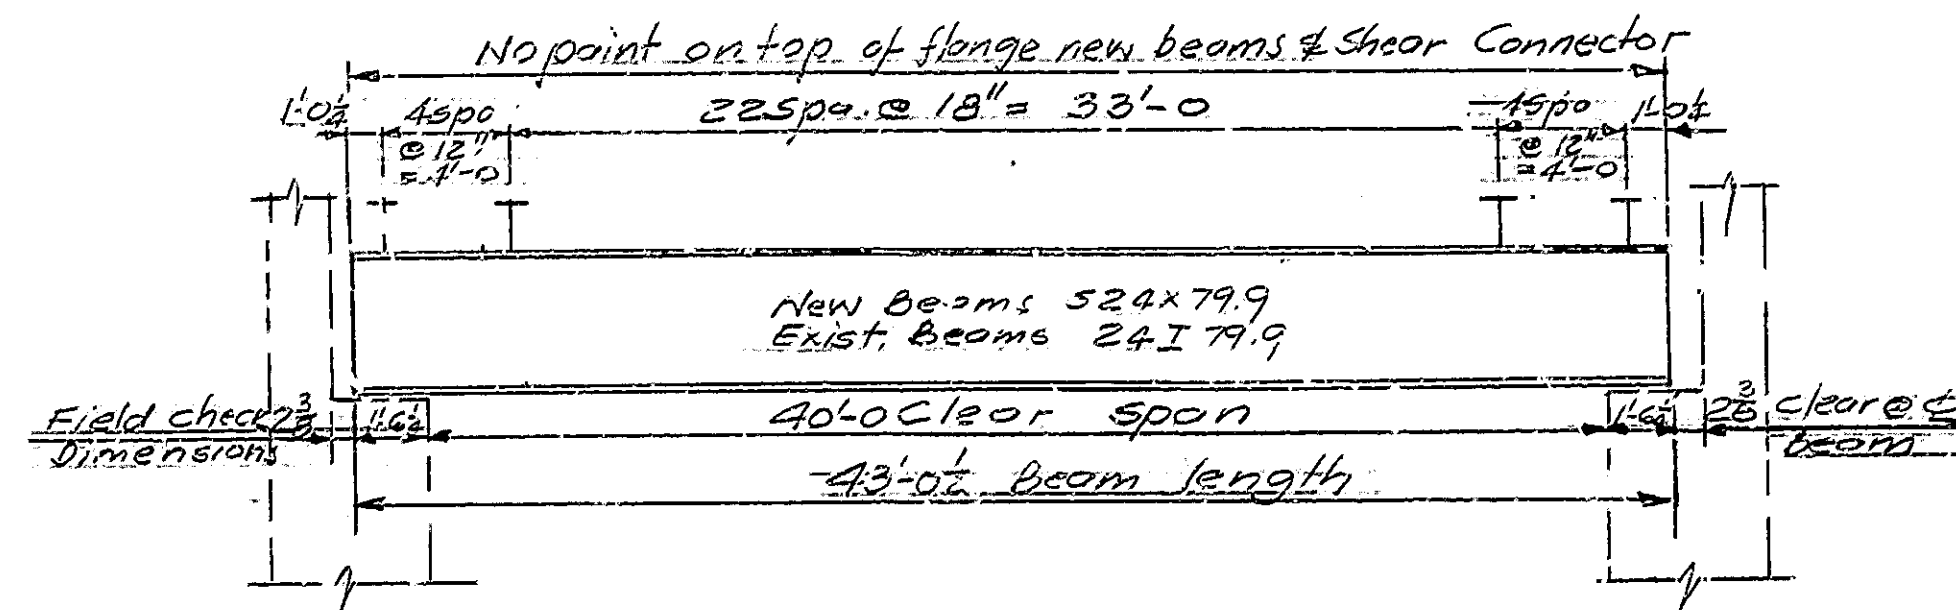 No paint on top of flange new beams & Shear Connector
1'-0¼ 4spa 22spa. @ 18" = 33'-0 4spa 1'-0¼
@ 12" @ 12"
= 4'-0 = 4'-0
New Beams S24x79.9
Exist. Beams 24 I 79.9
Field check 2⅜ 1'-6¼ 40'-0 Clear span 1'-6¼ 2⅜ Clear @ ℄
Dimensions Beam
43'-0½ Beam length